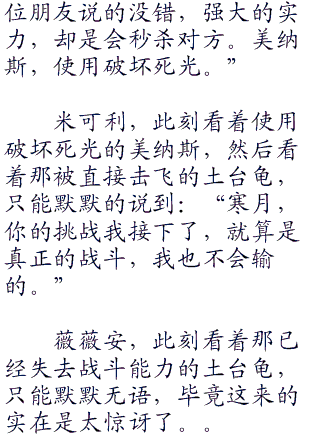 位朋友说的没错，强大的实
力，却是会秒杀对方。美纳
斯，使用破坏死光。”
米可利，此刻看着使用
破坏死光的美纳斯，然后看
着那被直接击飞的土台龟，
只能默默的说到：“寒月，
你的挑战我接下了，就算是
真正的战斗，我也不会输
的。”
薇薇安，此刻看着那已
经失去战斗能力的土台龟，
只能默默无语，毕竟这来的
实在是太惊讶了。。